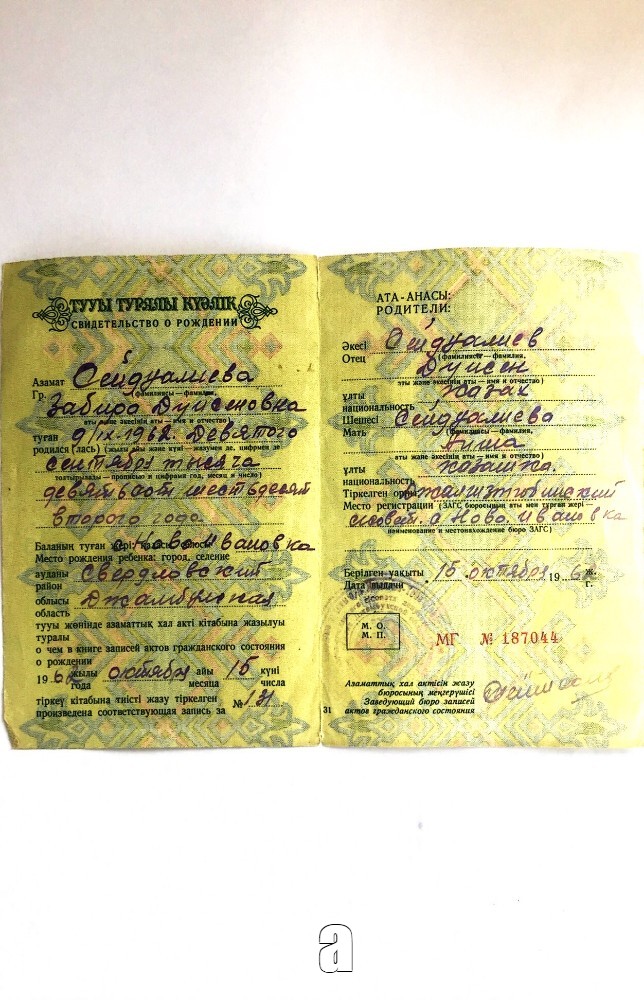 ТУУЫ ТУРАЛЫ КУӘЛІК
СВИДЕТЕЛЬСТВО О РОЖДЕНИИ
Азамат Сейдуалиева
Гр. (фамилиясы — фамилия)
Забира Дуйсеновна
аты және әкесінің аты — имя и отчество)
туған 9/IX-1962. Девятого
родился (лась) (жылы айы және күні — жазумен де, цифрмен де
сентября тысяча
толтырылады — прописью и цифрами год, месяц и число)
девятьсот шестьдесят
второго года
Баланың туған жері: с. Ново-Ивановка
Место рождения ребенка: город, селение
ауданы Свердловский
район
облысы Джамбулская
область
тууы жөнінде азаматтық хал акті кітабына жазылуы
туралы
о чем в книге записей актов гражданского состояния
о рождении
1962 жылы октября айы 15 күні
года месяца числа
тіркеу кітабына тиісті жазу тіркелген
произведена соответствующая запись за № 131
АТА-АНАСЫ:
РОДИТЕЛИ:
Әкесі Сейдуалиев
Отец (фамилиясы — фамилия,
Дуйсен
аты және әкесінің аты — имя и отчество)
ұлты казах
национальность
Шешесі Сейдуалиева
Мать (фамилиясы — фамилия,
аты және әкесінің аты — имя и отчество)
ұлты казашка.
национальность
Тіркелген орны
Место регистрации (ЗАГС бюросының аты мен тұрған жері —
с. Ново. Ивановка
наименование и местонахождение бюро ЗАГС)
Берілген уақыты 15 октября 1962 ж.
Дата выдачи г.
М. О.
М. П.
МГ № 187044
Азаматтық хал актісін жазу
бюросының меңгерушісі
Заведующий бюро записей
актов гражданского состояния
31
a